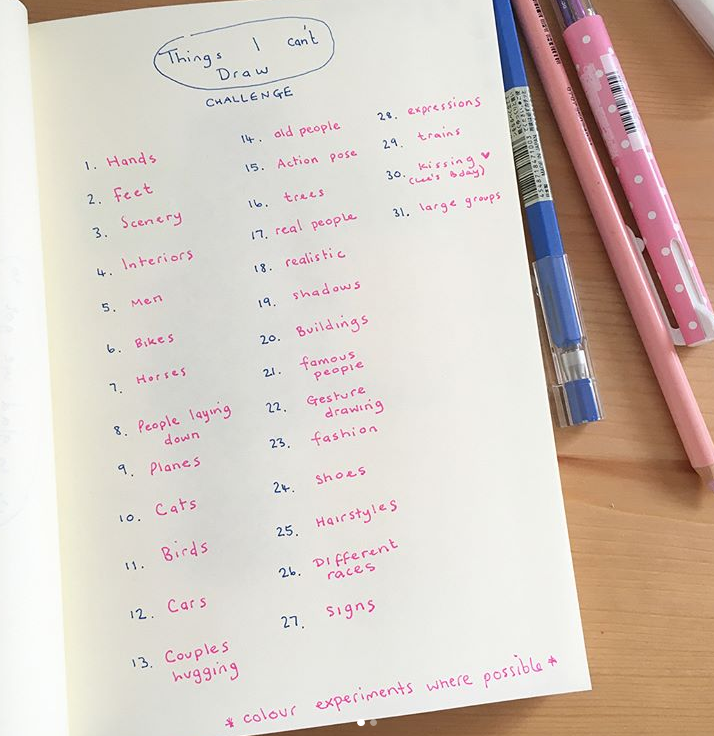 Things I can't
Draw
CHALLENGE
1. Hands
2. feet
3. Scenery
4. Interiors
5. Men
6. Bikes
7. Horses
8. People laying
down
9. Planes
10. Cats
11. Birds
12. Cars
13. Couples
hugging
14. old people
15. Action pose
16. trees
17. real people
18. realistic
19. shadows
20. Buildings
21. famous
people
22. Gesture
drawing
23. fashion
24. shoes
25. Hairstyles
26. Different
races
27. Signs
28. expressions
29. trains
30. kissing ♥
(Lee's Bday)
31. large groups
* colour experiments where possible *